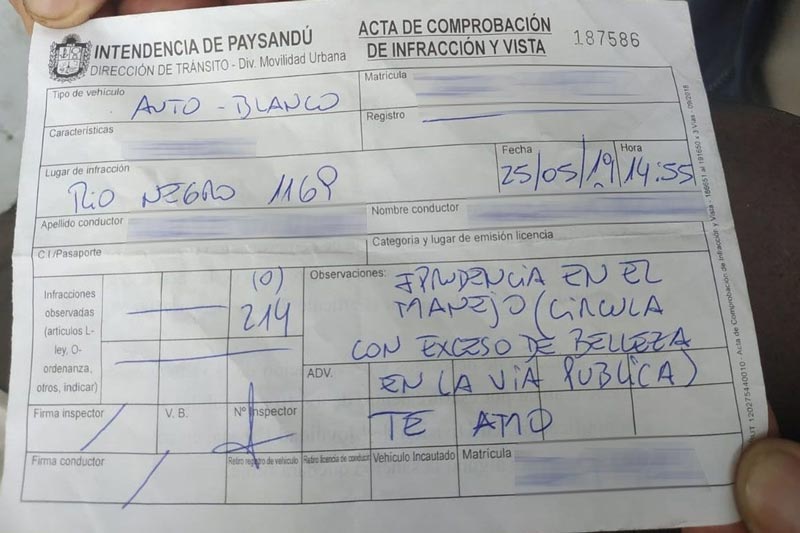 INTENDENCIA DE PAYSANDÚ
DIRECCIÓN DE TRÁNSITO - Div. Movilidad Urbana
ACTA DE COMPROBACIÓN
DE INFRACCIÓN Y VISTA
187586
Tipo de vehículo
AUTO - BLANCO
Matrícula
Características
Registro
Lugar de infracción
RIO NEGRO 1169
Fecha
25/05/19
Hora
14:55
Apellido conductor
Nombre conductor
C.I/Pasaporte
Categoria y lugar de emisión licencia
Infracciones
observadas
(artículos L-
ley, O-
ordenanza,
otros, indicar)
(O)
214
Observaciones:
EN EL
MANEJO (CIRCULA
CON EXCESO DE BELLEZA
EN LA VIA PUBLICA)
ADV.
TE AMO
Firma inspector
V. B.
Nº Inspector
Firma conductor
Retiro registro de vehículo
Retiro licencia de conducir
Vehículo Incautado
Matrícula
120275440010 - Acta de Comprobación de Infracción y Vista - 186651 al 191650 x 3 Vías - 09/2018